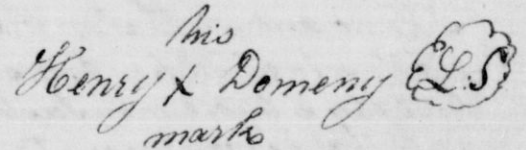 his
Henry X Domeny L.S
mark